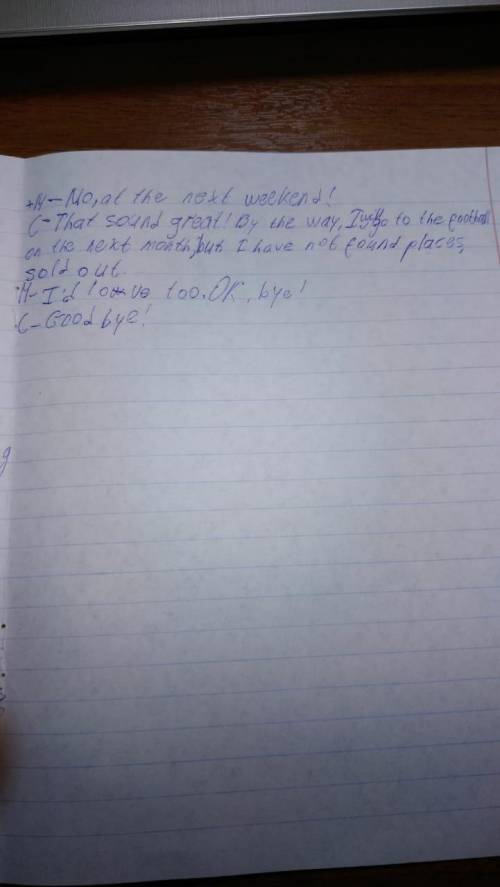 +H - No, at the next weekend!
C - That sound great! By the way, I go to the football
on the next month, but I have not found places,
sold out.
H - I'd love too. OK, bye!
C - Good bye!